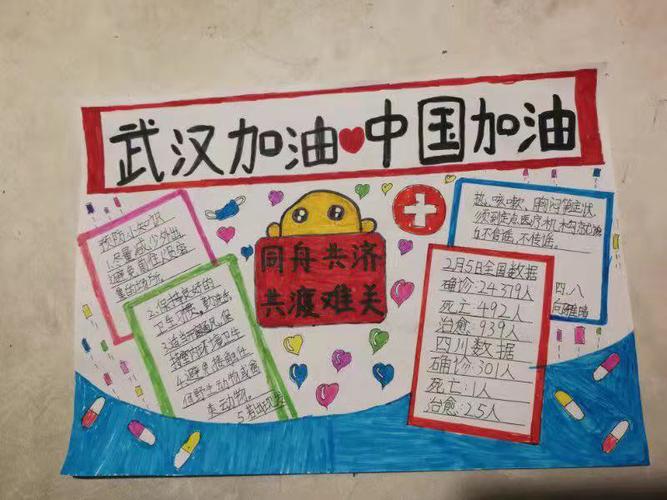 武汉加油❤中国加油
预防小知识
1.尽量减少外出
避免
2.保持良好的
卫生习惯，勤洗手
持室内环境卫生
4.避免接触任
何野生动物或禽
类动物。
5.若出现发
热、咳嗽、胸闷等症状，
须到定点医疗机构就诊
6.不信谣，不传谣。
同舟共济
共渡难关
2月5日全国数据
确诊：24379人
死亡：492人
治愈：939人
四川数据
确诊：301人
死亡：1人
治愈：25人
四.八